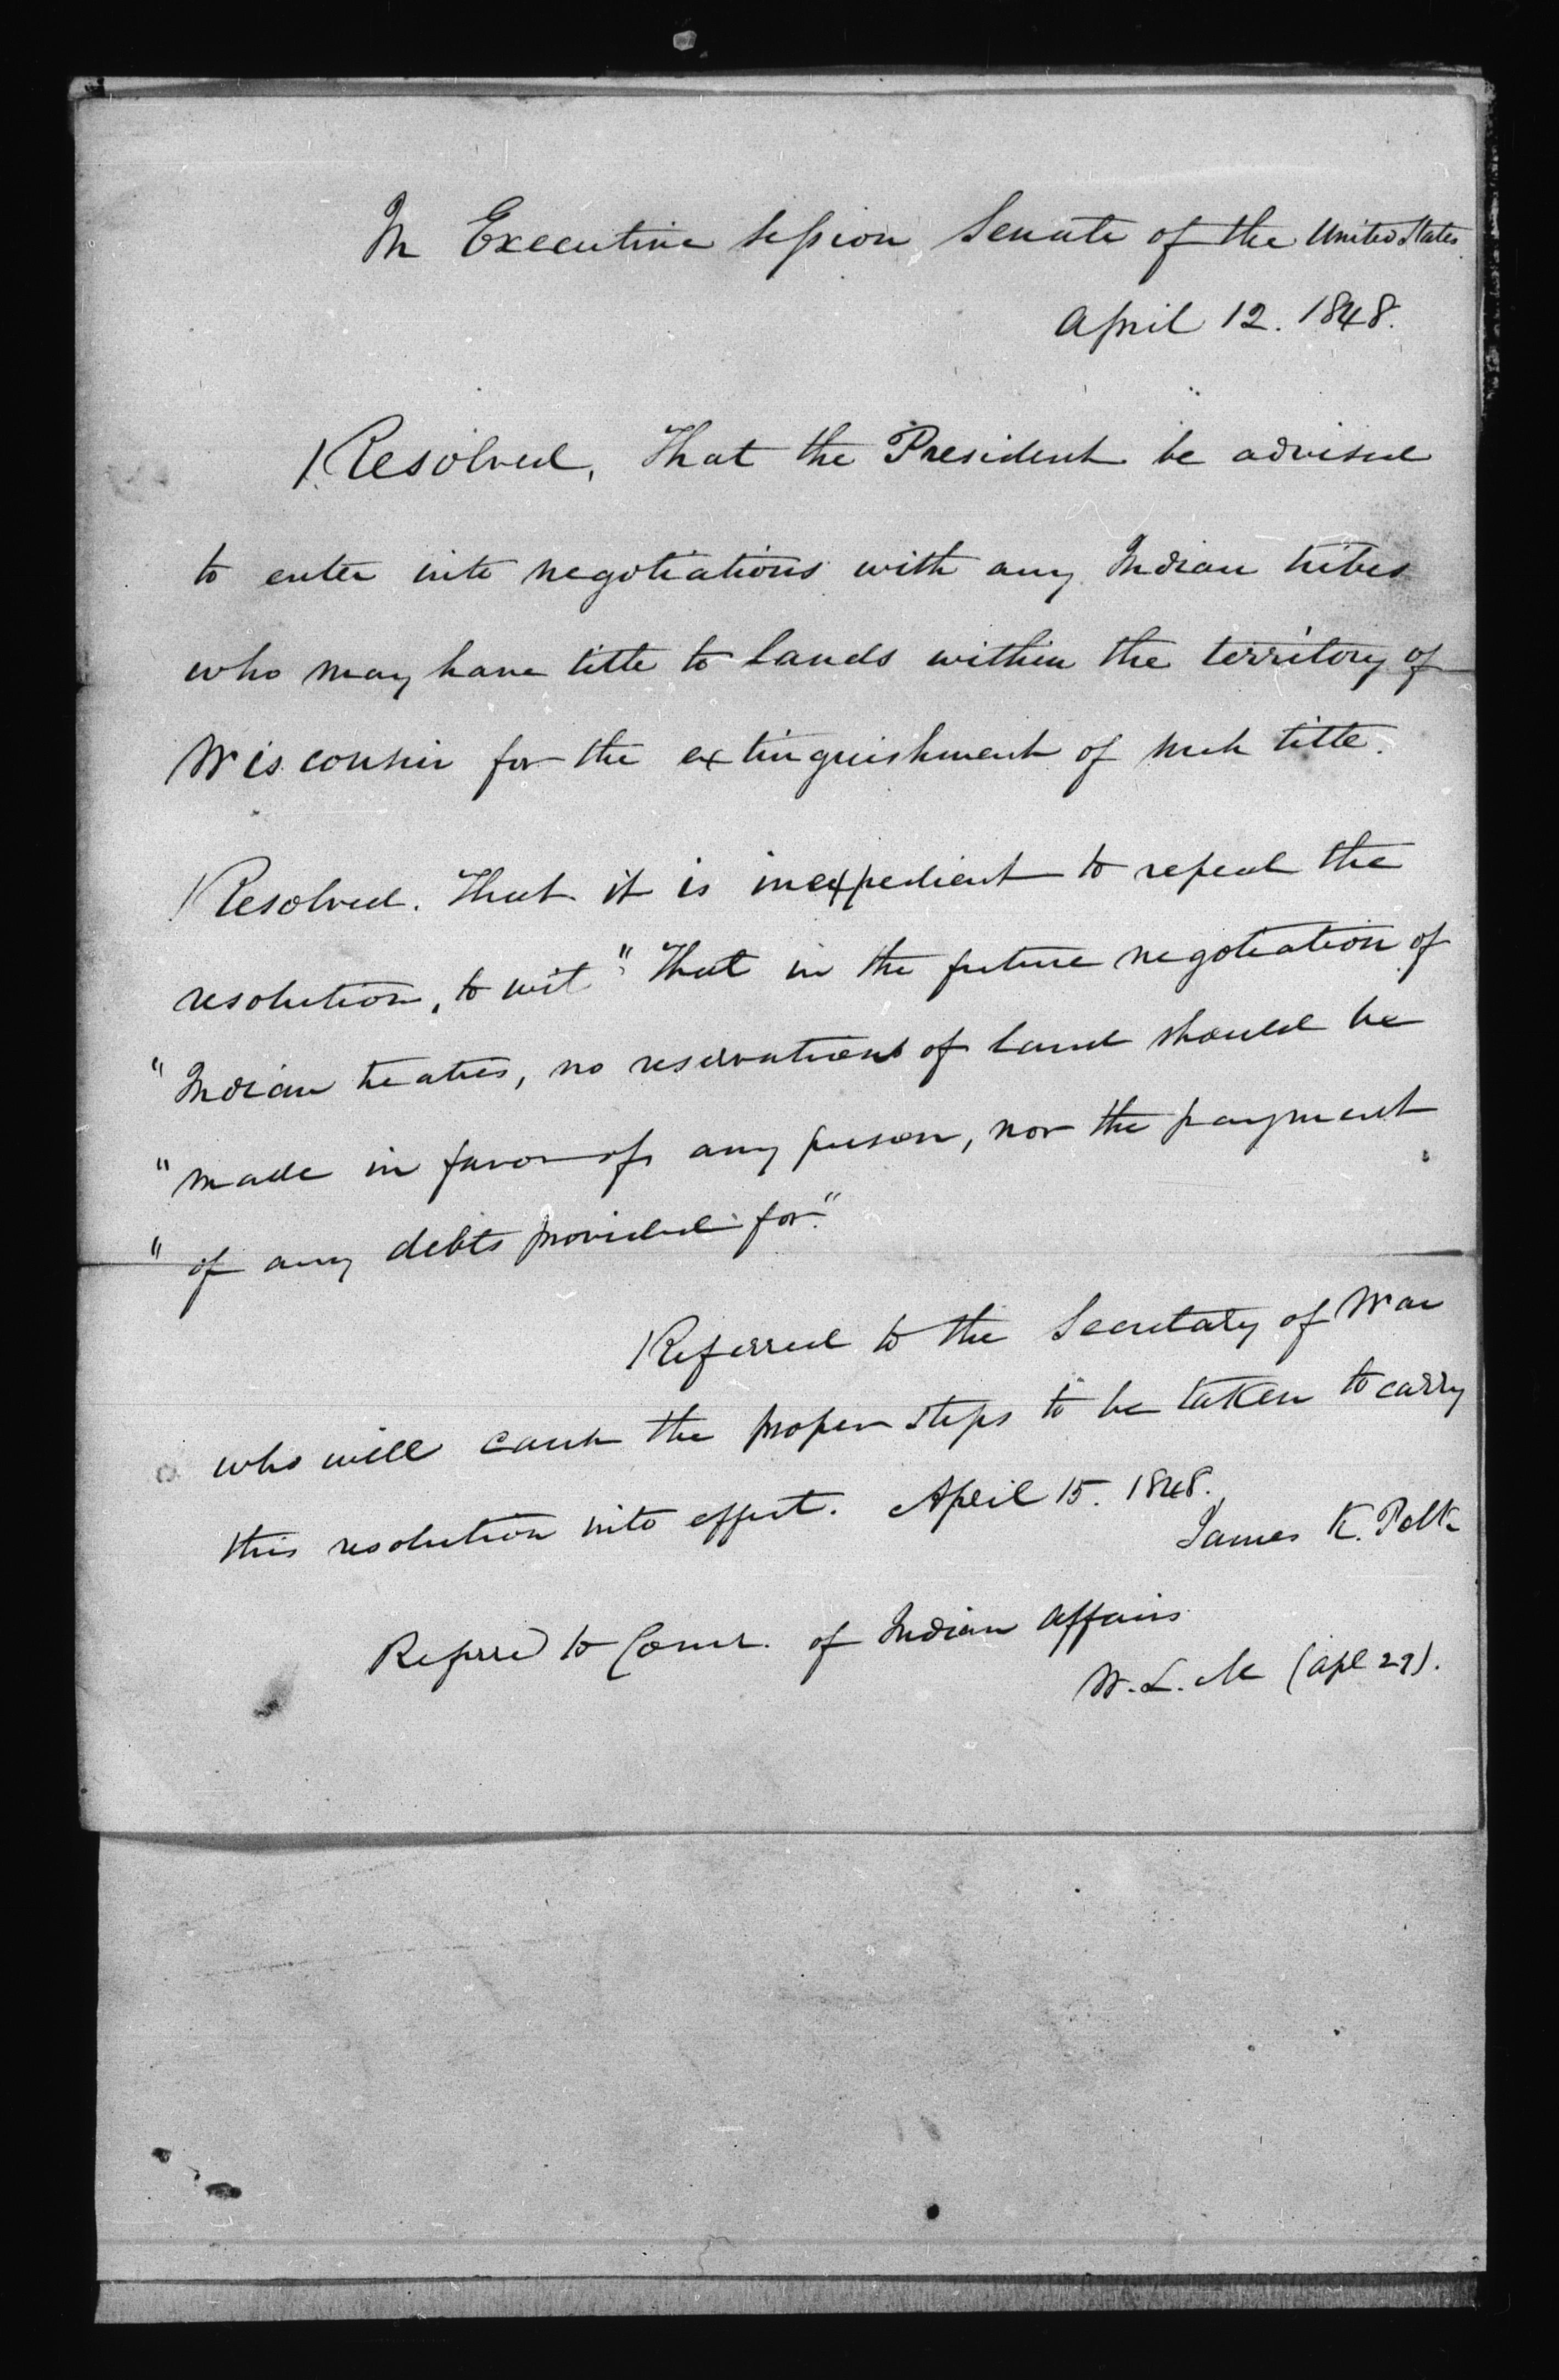 In Executive Session, Senate of the United States.
April 12. 1848.
Resolved, That the President be advised
to enter into negotiations with any Indian tribes
who may have title to lands within the territory of
Wisconsin for the extinguishment of such title.
Resolved. That it is inexpedient to repeal the
resolution, to wit: "That in the future negotiation of
"Indian treaties, no reservations of land should be
"made in favor of any person, nor the payment
"of any debts provided for."
Referred to the Secretary of War
who will cause the proper steps to be taken to carry
this resolution into effect. April 15. 1848.
James K. Polk
Referred to Comr. of Indian Affairs
W. L. M (apl 29).